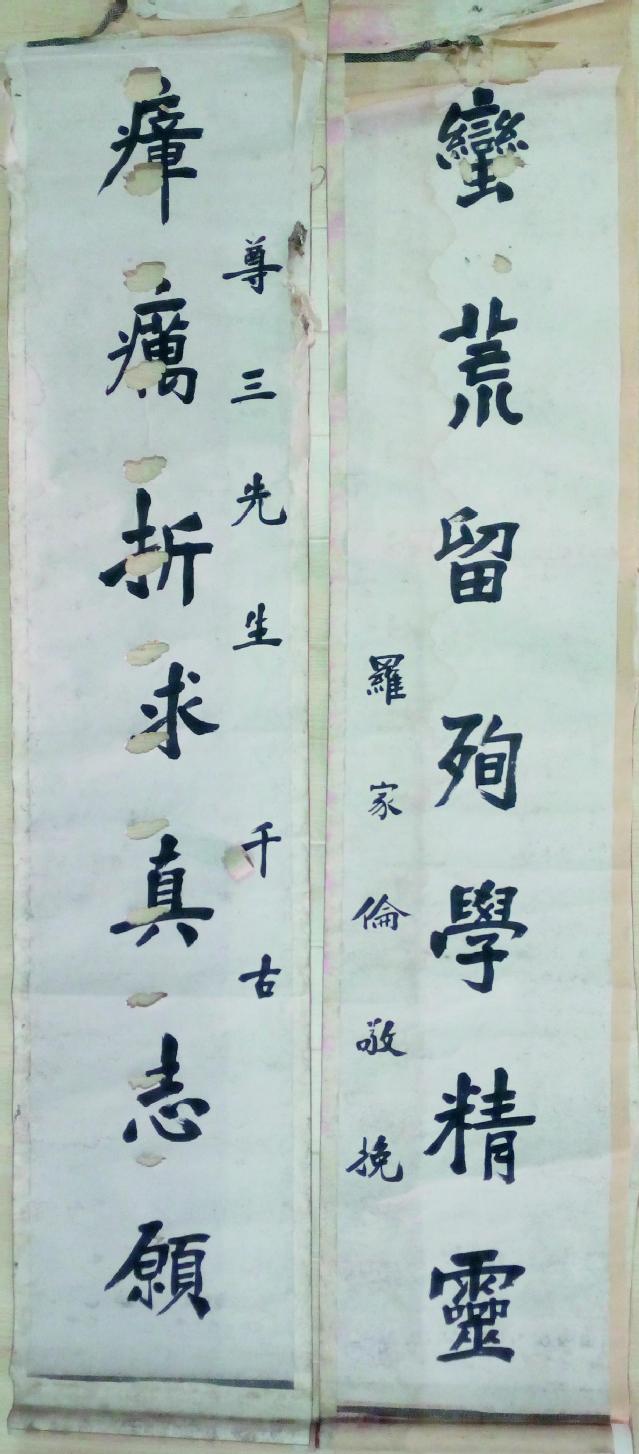 蠻荒留殉學精靈
羅家倫敬挽
尊三先生 千古
瘴癘折求真志願